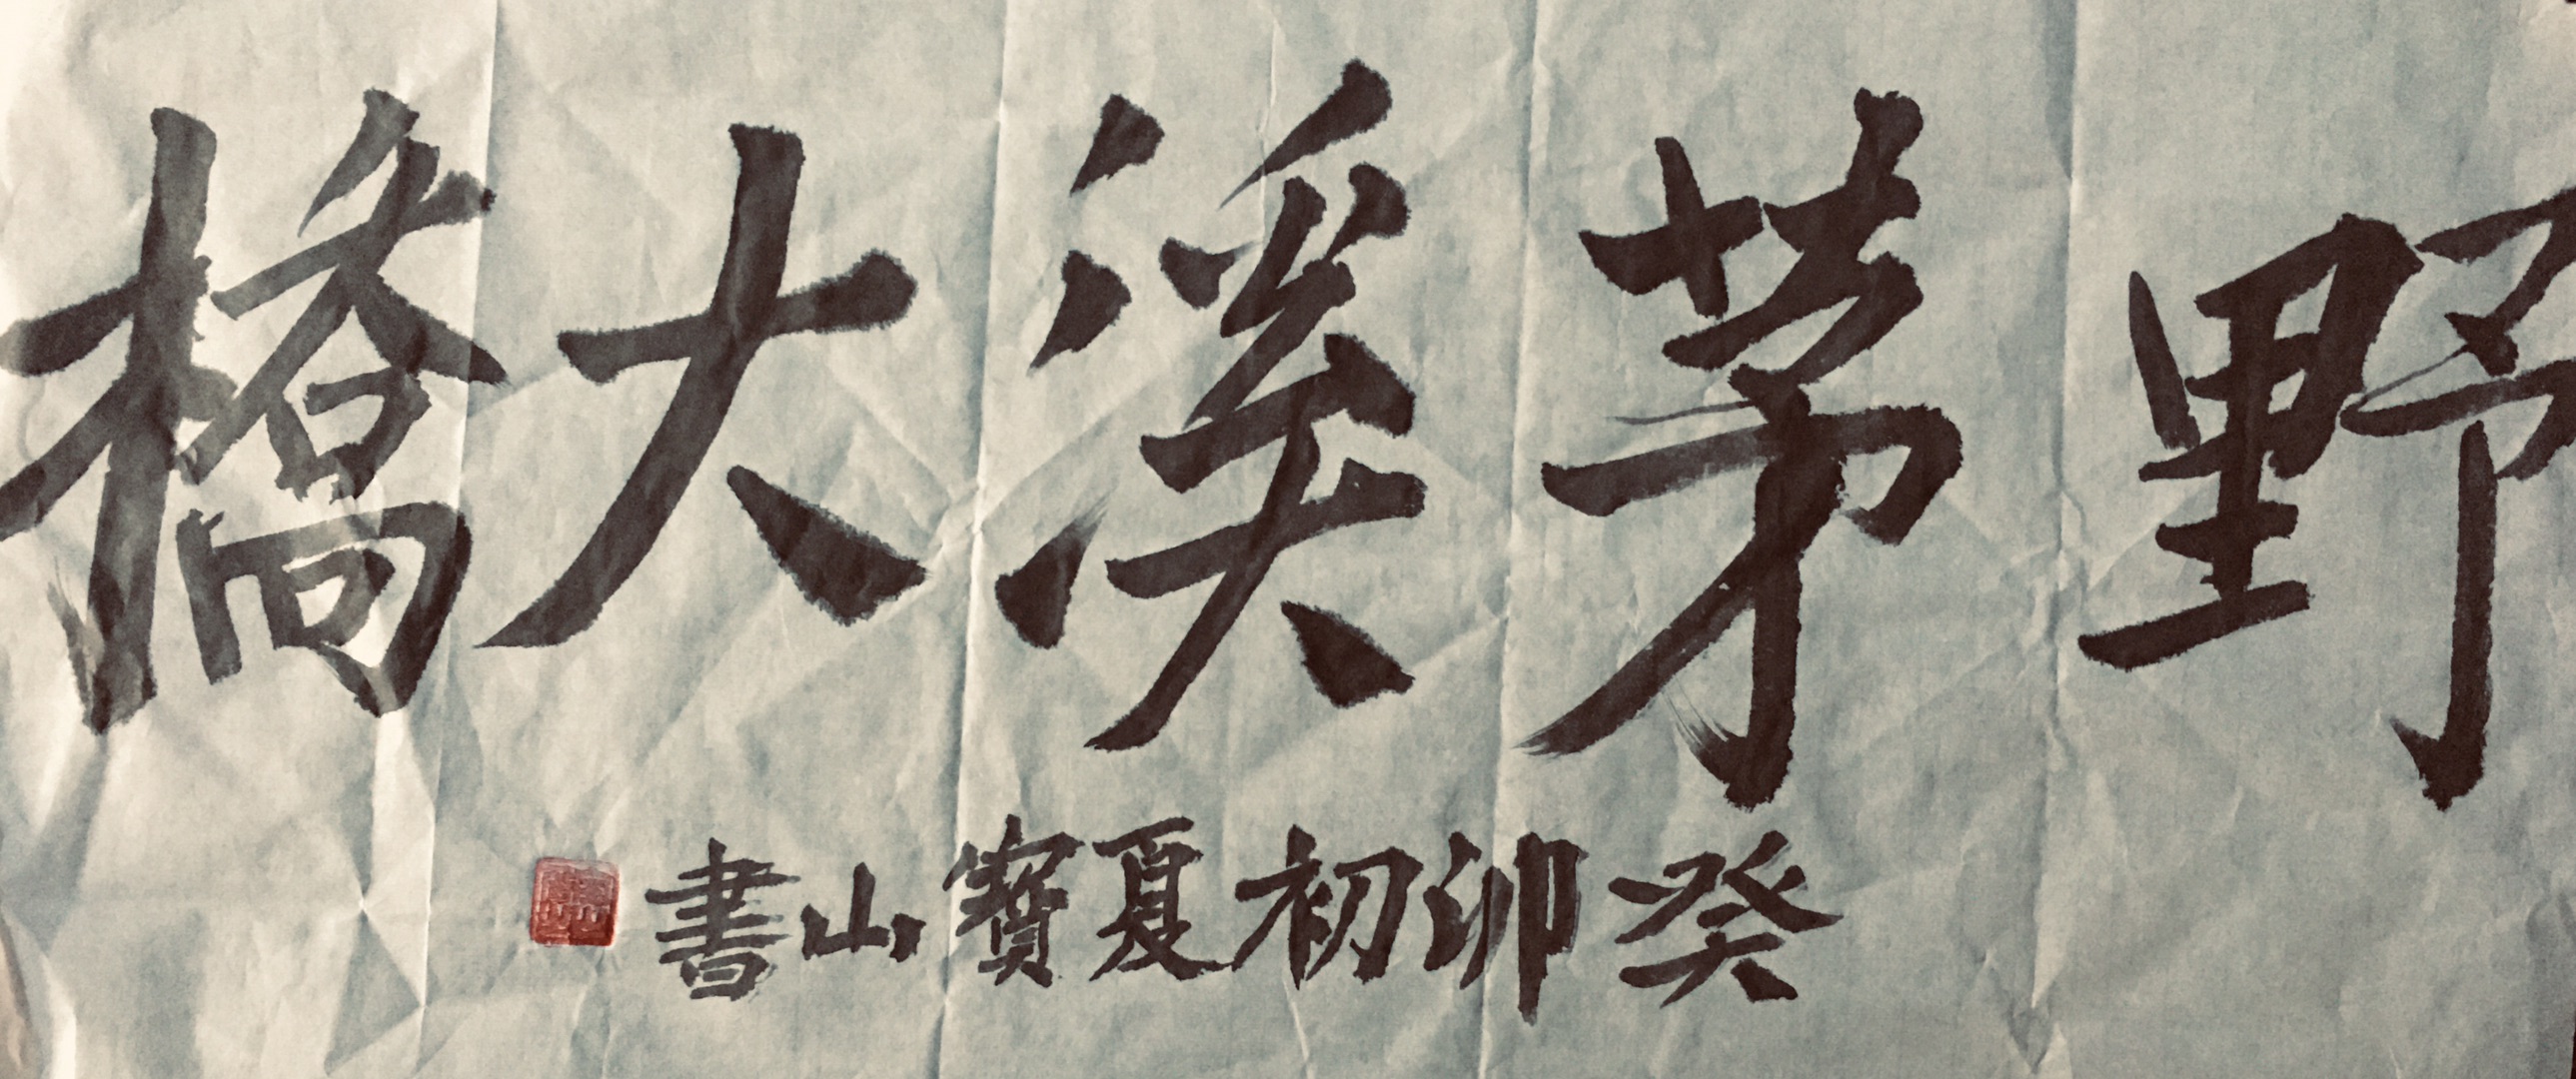 野茅溪大橋
癸卯初夏寶山書